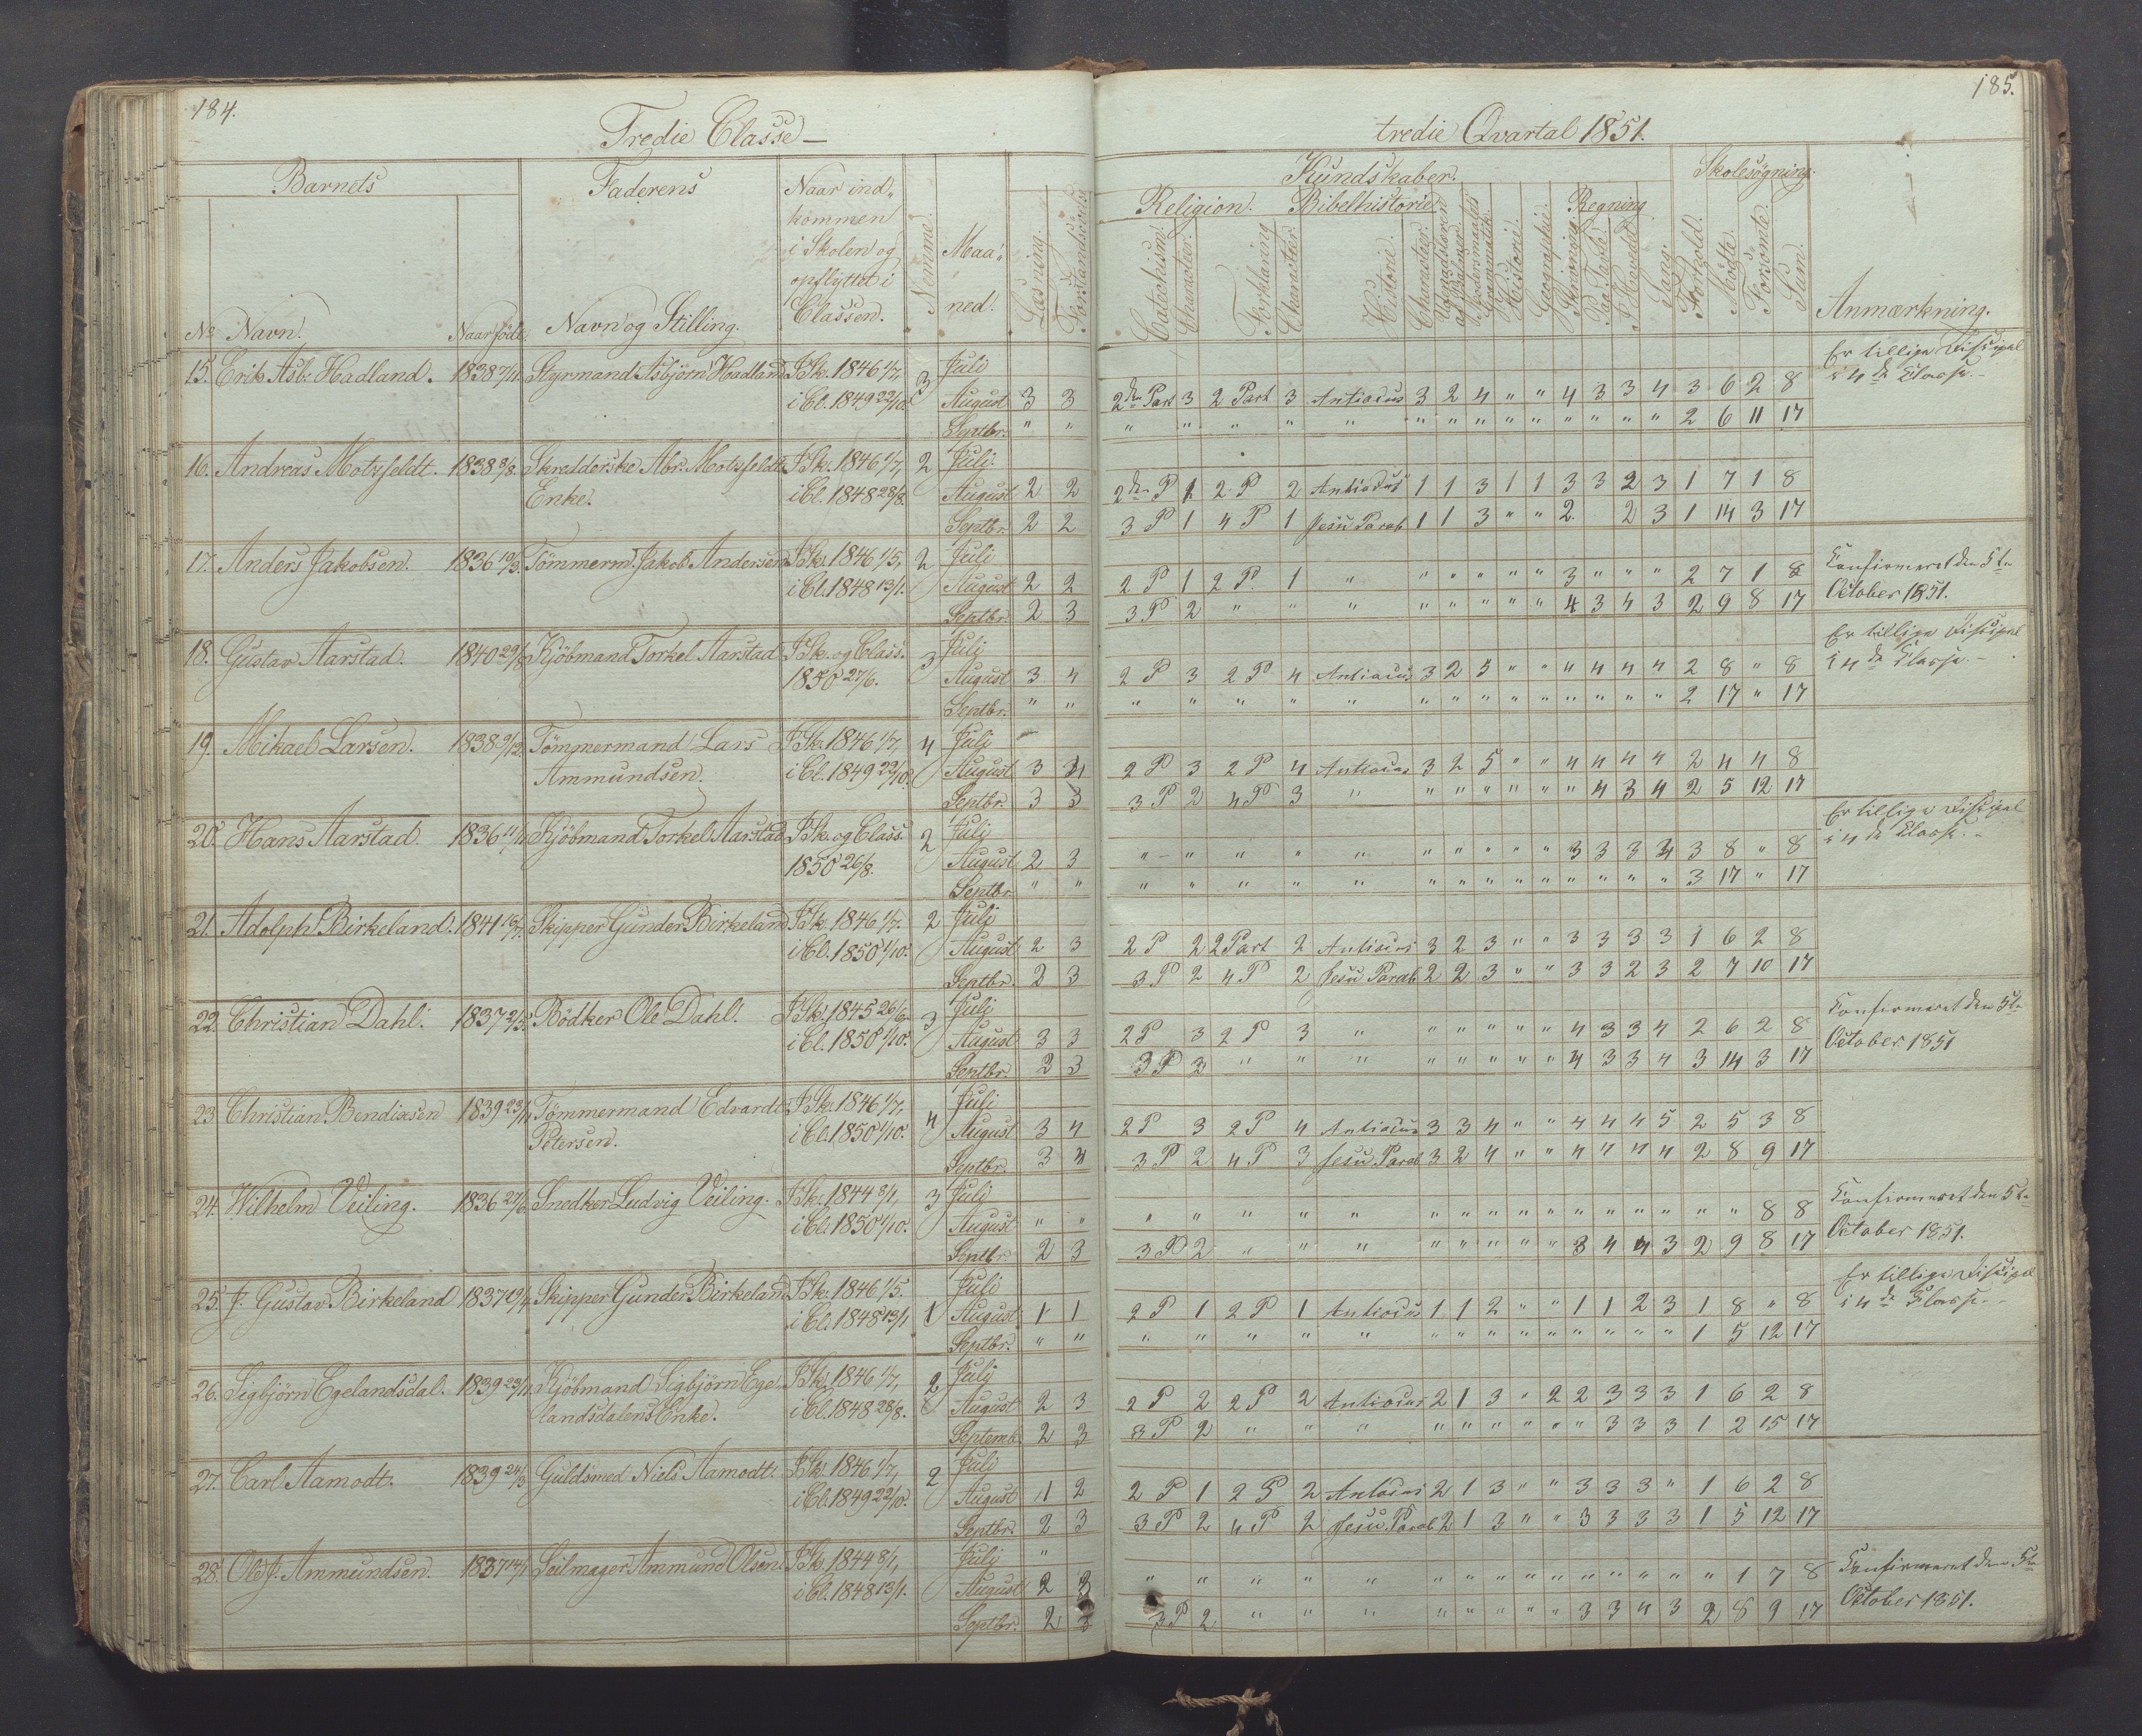 184.
Tredie Classe —
Barnets
Faderens
Naar ind-
kommen
i Skolen og
opflyttet i
Classen.
Nemme.
Maa-
ned.
Læsning.
Forstandsøvelse
No Navn.
Naar født.
Navn og Stilling.
15. Erik Asb. Hadland. 1838 Styrmand Asbjörn Hadland I Sk. 1846 1/7, 3 Juli
i Cl. 1849 22/10. August 3 3
Septbr. " "
16. Andreas Motzfeldt. 1838 Skredderske Abr. Motzfeldts I Sk. 1846 1/7, 2 Juli.
Enke. i Cl. 1848 28/8. August 2 2
Septbr. 2 2
17. Anders Jakobsen. 1836 Tömmerm. Jakob Andersen I Sk. 1846 1/5, 2 Juli
i Cl. 1848 13/1. August 2 2
Septbr. 2 3
18. Gustav Aarstad. 1840 Kjöbmand Torkel Aarstad I Sk. og Class. 3 Juli
1850 27/6. August 3 4
Septbr. " "
19. Mikael Larsen. 1838 Tömmermand Lars I Sk. 1846 1/7, 4 Juli
Ammundsen. i Cl. 1849 22/10. August 3
Septbr. 3 3
20. Hans Aarstad. 1836 Kjöbmand Torkel Aarstad I Sk. og Class. 2 Juli
1850 26/8. August 2 3
Septbr. " "
21. Adolph Birkeland. 1841 Skipper Gunder Birkeland I Sk. 1846 1/7. 2 Juli
i Cl. 1850 1/10. August 2 3
Septbr. 2 3
22. Christian Dahl. 1837 Bödker Ole Dahl. I Sk. 1845 26/6 3 Juli
i Cl. 1850 1/10. August 3 3
Septbr. 3
23 Christian Bendixsen 1839 Tömmermand Edvard I Sk. 1846 1/7, 4 Juli
Petersen. i Cl. 1850 1/10. August 3 4
Septbr. 3 4
24. Wilhelm Veiling. 1836 27/6 Snedker Ludvig Veiling. I Sk. 1844 8/1, 3 Juli
i Cl. 1850 1/10. August " "
Septbr 2 3
25. J. Gustav Birkeland 1837 Skipper Gunder Birkeland I Sk. 1846 1/5. Juli
i Cl. 1848 13/1 1 August 1 1
Septbr. " "
26. Sigbjörn Egelandsdal. 1839 Kjöbmand Sigbjörn Ege- I Sk. 1846 1/7, 2 Juli
landsdalens Enke. i Cl. 1848 28/8. August 2 3
Septemb. 2 3
27. Carl Aamodt. 1839 24/3 Guldsmed Niels Aamodt. I Sk. 1846 1/7, 2 Juli
i Cl. 1849 22/10. August 1 2
Septbr. 2 3
28. Ole J. Ammundsen. 1837 Seilmager Ammund Olsen I Sk. 1844 8/1, Juli "
i Cl. 1848 13/1. August 2
Septbr. 2
185.
tredie Qvartal 1851.
Kundskaber.
Skolesøgning.
Religion. Bibelhistorie
Regning
Catechism.
Character.
Forklaring
Character.
Historie.
Character.
Modersmaalets
Grammatik.
Historie.
Geographie.
Skrivning.
Paa Tavle.
I Hovedet.
Sang.
Forhold.
Mötte.
Forsömte.
Sum.
Anmærkning.
Er tillige Discipel
i 4de Classe. –
2den Part 3 2 Part 3 Antiocus 3 2 4 " " 4 3 3 4 3 6 2 8
" " " " " " " " " " " " " " 2 6 11 17
2den P 1 2 P 2 Antiocus 1 1 3 1 1 3 3 2 3 1 7 1 8
3 P 1 4 P 1 Jesu Parab. 1 1 3 " " 2. 2 3 1 14 3 17
Confirmeret den 5te
2 P 1 2 P. 1 " " " " " " 3 " " " 2 7 1 8
October 1851.
3 P 2 " " " " " " " " 4 3 4 3 2 9 8 17
Er tillige Discipel
i 4de Classe. –
2 P 3 2 P 4 Antiocus 3 2 5 " " " 4 4 4 2 8 " 8
" " " " " " " " " " " " " " 2 17 " 17
2 P 3 2 P 4 Antiocus 3 2 5 " " 4 4 4 4 2 4 4 8
3 P 2 4 P 3 " " " " " " " 4 3 4 2 5 12 17
Er tillige Discipel
i 4de Classe. –
" " " " " " " " " " 3 3 3 3 3 8 " 8
" " " " " " " " " " " " " " 3 17 " 17
2 P 2 2 Part 2 Antiocus 3 2 3 " " 3 3 3 3 1 6 2 8
3 P 2 4 P 2 Jesu Parab. 2 2 3 " " 3 3 2 3 2 7 10 17
Confirmeret den 5te
2 P 3 2 P 3 " " " " " " 4 3 3 4 2 6 2 8
October 1851
3 P 2 " " " " " " " " 4 3 3 4 3 14 3 17
2 P 3 2 P 4 Antiocus 3 3 4 " " 4 4 4 5 2 5 3 8
3 P 2 4 P 3 Jesu Parab 3 2 4 " " 4 4 4 4 2 8 9 17
Confirmeret den 5te
" " " " " " " " " " " " " " " " 8 8
October 1851.
3 P 2 " " " " " " " " 3 4 4 3 2 9 8 17
Er tillige Discipel
i 4de Classe. –
2 P 1 2 P 1 Antiocus 1 1 2 " " 1 1 2 3 1 8 " 8
" " " " " " " " " " " " " " 1 5 12 17
2 P 2 2 P 2 Antiocus 2 1 3 " 2 2 3 3 3 1 6 2 8
3 P 2 " " " " " " " " " 3 3 3 1 2 15 17
2 P 1 2 P 2 Antiocus 2 1 3 " " 3 3 3 " 1 6 2 8
3 P 2 4 P 2 Jesu Parab. 2 1 3 " " 3 3 3 3 1 5 12 17
Confirmeret den 5te
" " " " " " " " " " " " " " " 1 7 8
October 1851.
3 P 2 " " " " " " " " 3 3 4 3 2 8 9 17